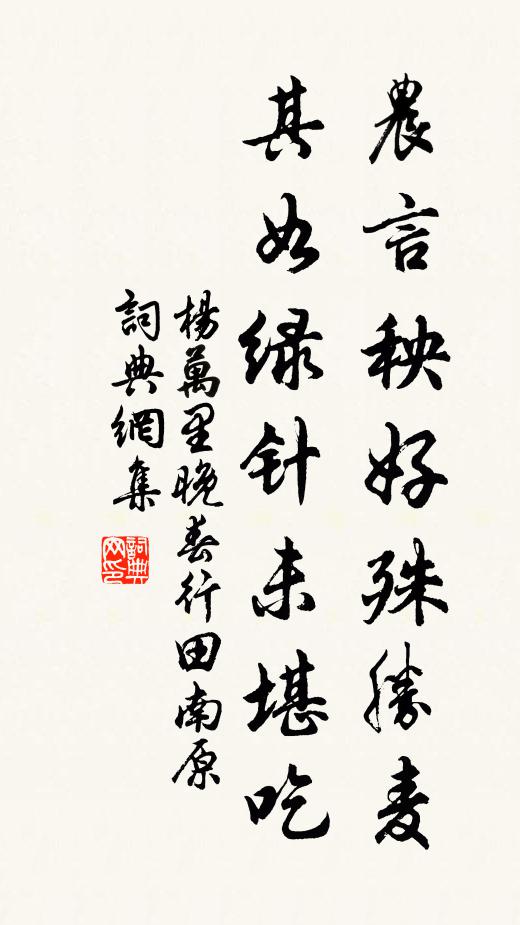 農言秧好殊勝麦
其如绿针未堪吃
楊萬里晚春行田南原
詞典網集
詞典网印